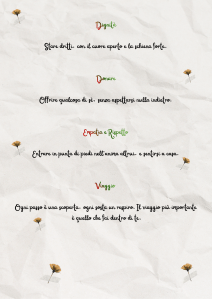 Dignità
Stare dritti, con il cuore aperto e la schiena forte.
Donare
Offrire qualcosa di sé, senza aspettarsi nulla indietro.
Empatia e Rispetto
Entrare in punta di piedi nell'anima altrui, e sentirsi a casa.
Viaggio
Ogni passo è una scoperta, ogni sosta un respiro. Il viaggio più importante
è quello che fai dentro di te.